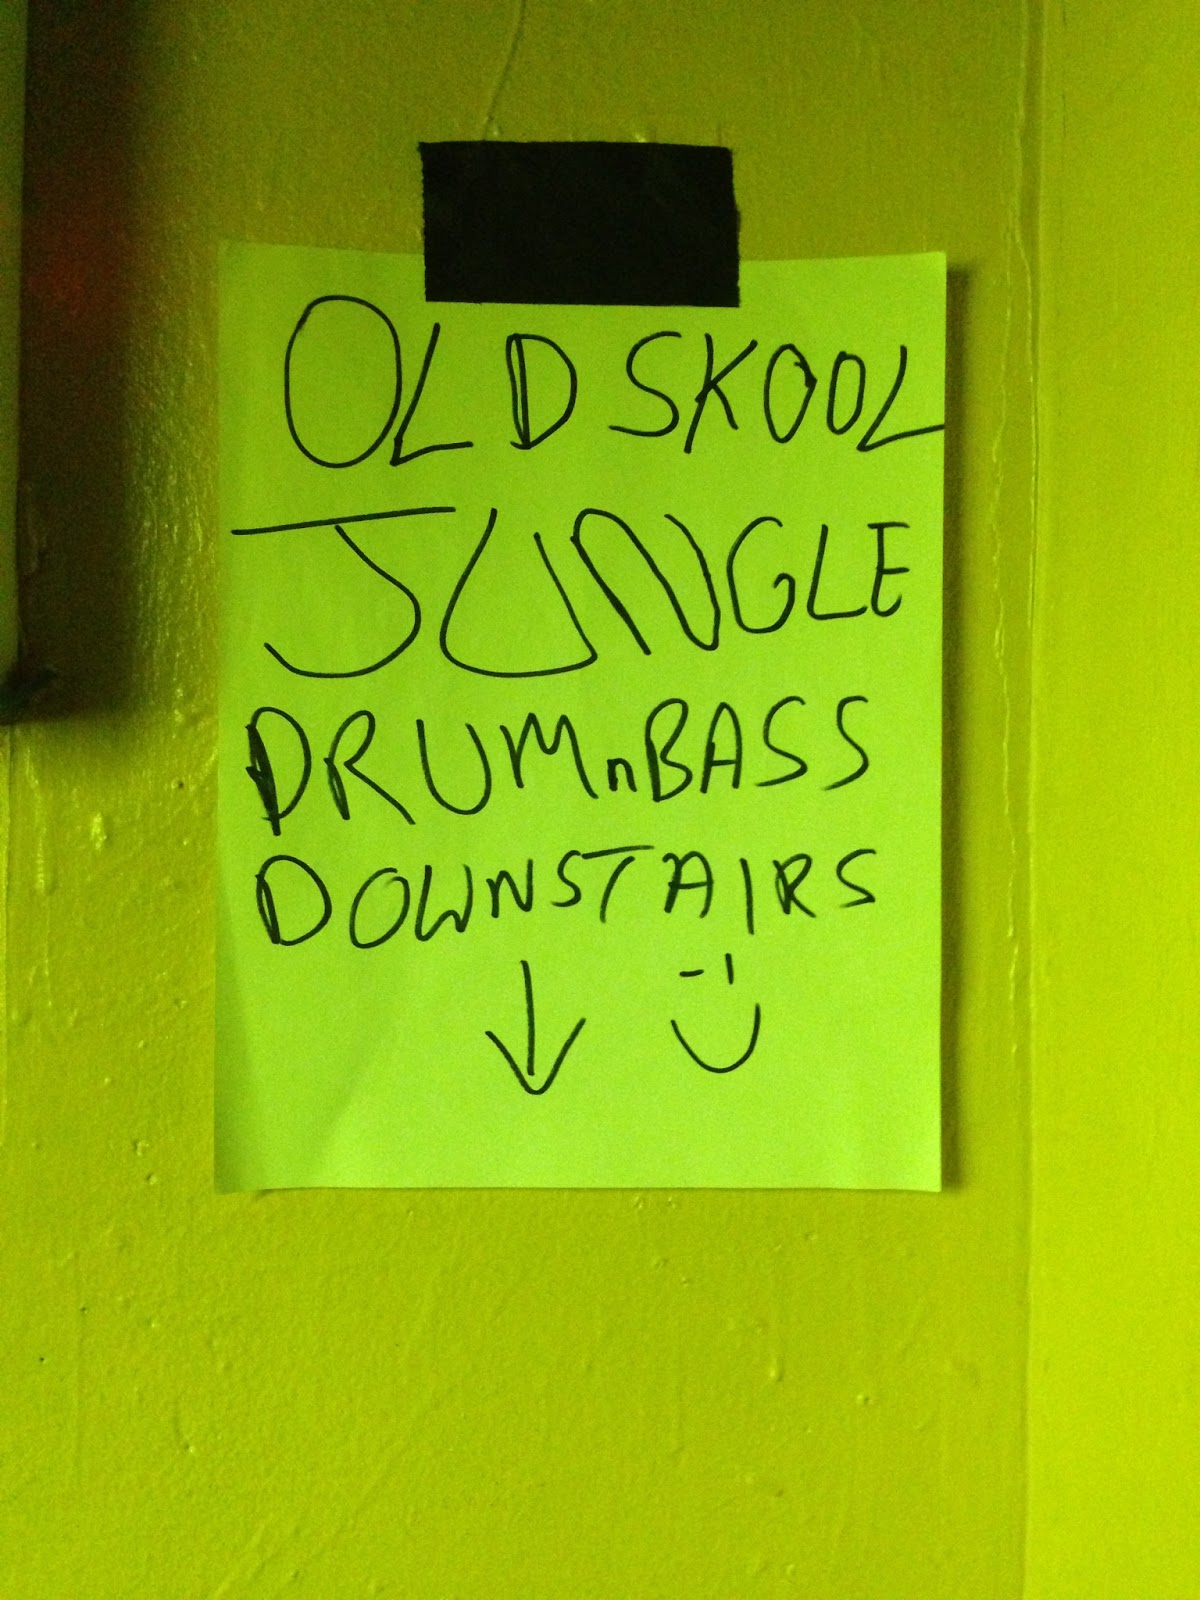 OLD SKOOL
JUNGLE
DRUM n BASS
DOWNSTAIRS